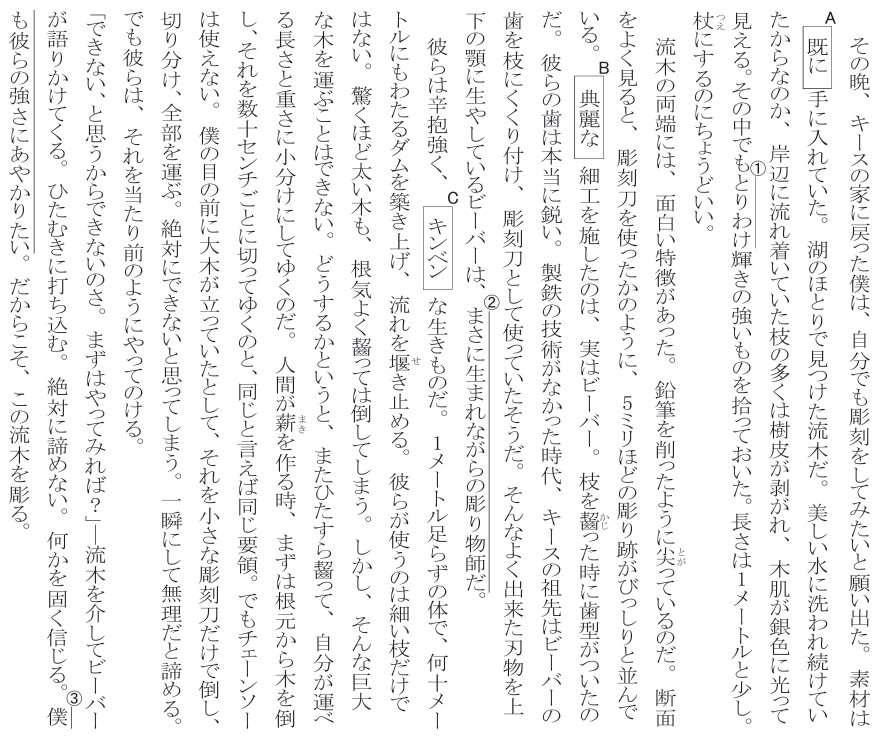 その晩、キースの家に戻った僕は、自分でも彫刻をしてみたいと願い出た。素材は
A
既に手に入れていた。湖のほとりで見つけた流木だ。美しい水に洗われ続けてい
たからなのか、岸辺に流れ着いていた枝の多くは樹皮が剥がれ、木肌が銀色に光って
見える。その中でも①とりわけ輝きの強いものを拾っておいた。長さは1メートルと少し。
杖つえにするのにちょうどいい。
流木の両端には、面白い特徴があった。鉛筆を削ったように尖とがっているのだ。断面
をよく見ると、彫刻刀を使ったかのように、5ミリほどの彫り跡がびっしりと並んで
B
いる。典麗な細工を施したのは、実はビーバー。枝を齧かじった時に歯型がついたの
だ。彼らの歯は本当に鋭い。製鉄の技術がなかった時代、キースの祖先はビーバーの
歯を枝にくくり付け、彫刻刀として使っていたそうだ。そんなよく出来た刃物を上
下の顎に生やしているビーバーは、②まさに生まれながらの彫り物師だ。
C
彼らは辛抱強く、キンベンな生きものだ。1メートル足らずの体で、何十メー
トルにもわたるダムを築き上げ、流れを堰せき止める。彼らが使うのは細い枝だけで
はない。驚くほど太い木も、根気よく齧っては倒してしまう。しかし、そんな巨大
な木を運ぶことはできない。どうするかというと、またひたすら齧って、自分が運べ
る長さと重さに小分けにしてゆくのだ。人間が薪まきを作る時、まずは根元から木を倒
し、それを数十センチごとに切ってゆくのと、同じと言えば同じ要領。でもチェーンソー
は使えない。僕の目の前に大木が立っていたとして、それを小さな彫刻刀だけで倒し、
切り分け、全部を運ぶ。絶対にできないと思ってしまう。一瞬にして無理だと諦める。
でも彼らは、それを当たり前のようにやってのける。
「できない、と思うからできないのさ。まずはやってみれば？」―流木を介してビーバー
が語りかけてくる。ひたむきに打ち込む。絶対に諦めない。何かを固く信じる。③僕
も彼らの強さにあやかりたい。だからこそ、この流木を彫る。